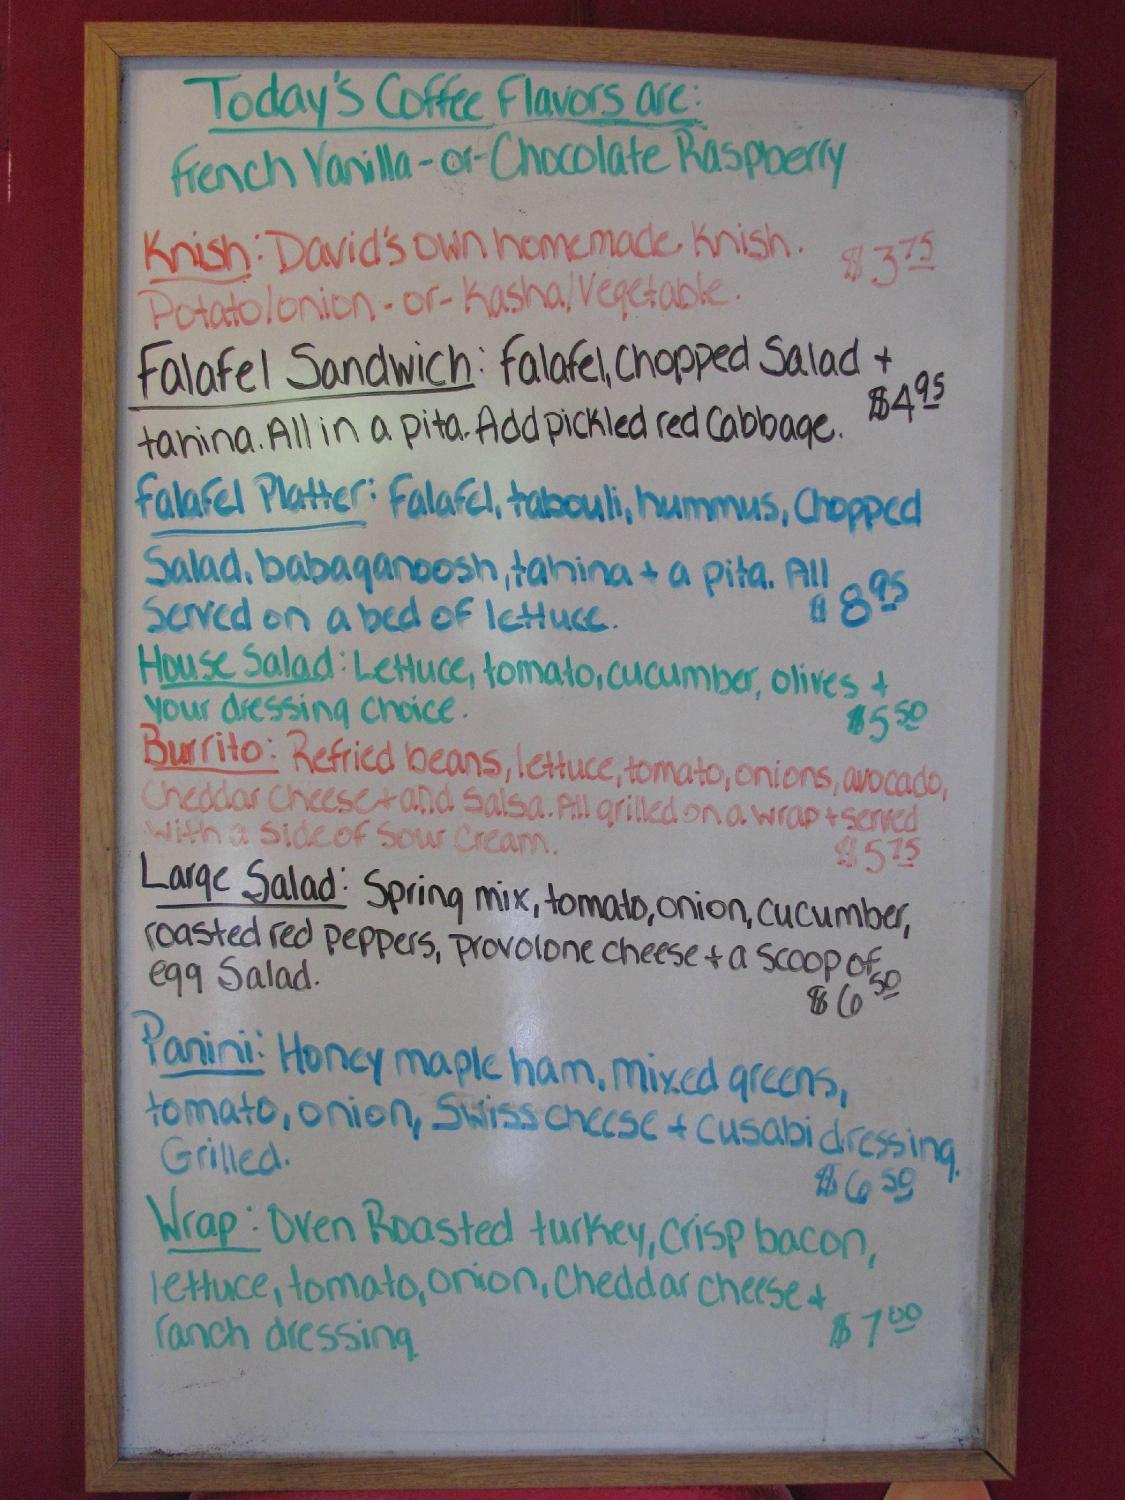 Today's Coffee Flavors are:
French Vanilla-or-Chocolate Raspberry
Knish: David's own homemade Knish. $3.75
Potato/onion-or-Kasha/Vegetable.
Falafel Sandwich: Falafel, Chopped Salad +
tahina. All in a pita. Add pickled red Cabbage. $4.95
Falafel Platter: Falafel, tabouli, hummus, Chopped
Salad, babaganoosh, tahina + a pita. All
Served on a bed of lettuce. $8.95
House Salad: Lettuce, tomato, cucumber, olives +
your dressing choice. $5.50
Burrito: Refried beans, lettuce, tomato, onions, avocado,
Cheddar Cheese + and Salsa. All grilled on a wrap + served
with a side of Sour Cream. $5.75
Large Salad: Spring mix, tomato, onion, cucumber,
roasted red peppers, provolone cheese + a scoop of
egg Salad. $6.50
Panini: Honey maple ham, mixed greens,
tomato, onion, Swiss cheese + cusabi dressing.
Grilled. $6.50
Wrap: Oven Roasted turkey, crisp bacon,
lettuce, tomato, onion, Cheddar cheese +
ranch dressing $7.00